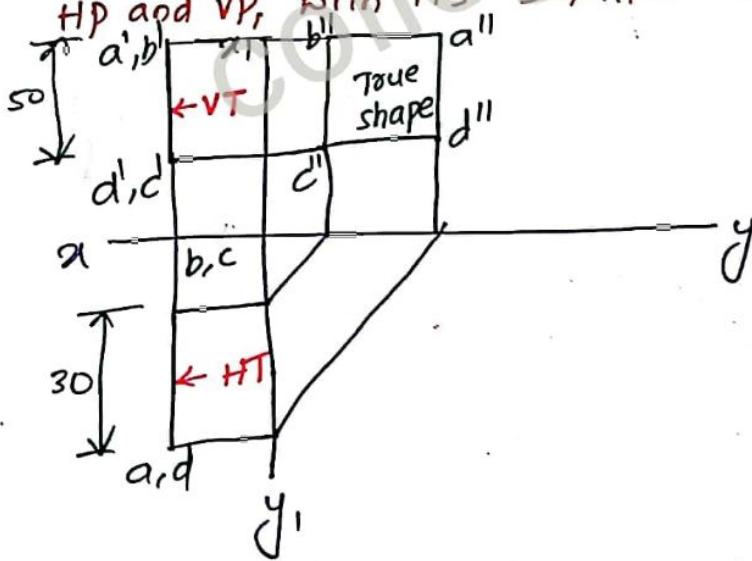 HP and VP,
a',b' x₁ b'' a''
50
←VT
True
shape
d''
d',c' c''
x b,c y
30
← HT
a,d
y₁